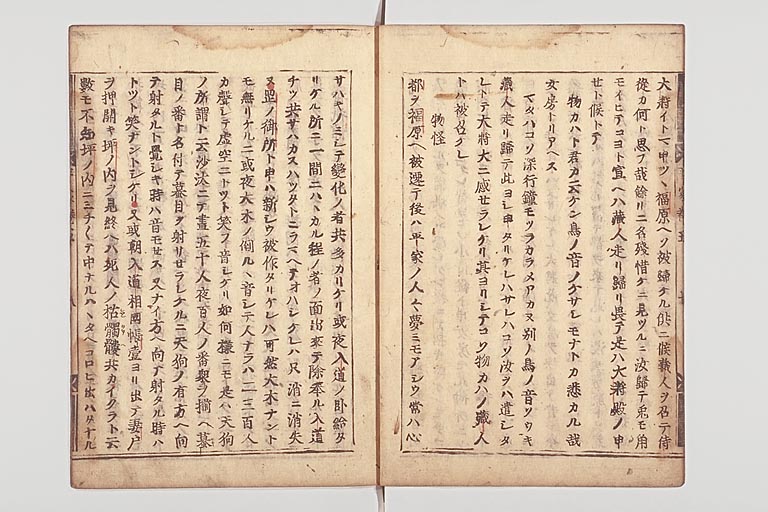 大将イトマ申ツヽ福原ヘソ被帰ケル供ニ候蔵人ヲ召テ侍
従カ何ト思フ哉餘リニ名残惜ケニ見ツルニ汝帰テ兎モ角
モイヒテコヨト宣ヘハ蔵人走リ帰リ畏テ是ハ大将殿ノ申
セト候トテ
物カハト君カ云ケン鳥ノ音ノケサシモナトカ悲カル哉
女房トリアヘス
マタハコソ深行鐘モツラカラメアカヌ別ノ鳥ノ音ソウキ
蔵人走リ帰テ此ヨシ申タリケレハサレハコソ汝ヲハ遣シタ
レトテ大将大ニ感セラレケリ其ヨリシテコソ物カハノ蔵人
トハ被召ケレ
物怪
都ヲ福原ヘ被遷テ後ハ平家ノ人々夢ミモアシウ常ハ心
サハキノミシテ變化ノ者共多カリケリ或夜入道ノ卧給タ
リケル所ニ一間ニハヽカル程ノ者ノ面出来テ除奉ル入道
チツ共サハカスハツタトニラマヘテオハシケレハ只消ニ消失
ヌ岡ノ御所ト申ハ新シウ被作タリケレハ可然大木ナント
モ無リケルニ或夜大木ノ倒ルヽ音シテ人ナラハ二三百人
カ聲シテ虚空ニトツト笑フ音シケリ如何様ニモ是ハ天狗
ノ所謂ト云沙汰ニテ晝五十人夜百人ノ番衆ヲ揃ヘ蟇
目ノ番ト名付テ蟇目ヲ射サセラレケルニ天狗ノ有方ヘ向
テ射タルト覺シキ時ハ音モセス又ナイ方ヘ向テ射タル時ハ
トツト笑ナントシケリ又或朝入道相國帳臺ヨリ出テ妻戸
ヲ押開キ坪ノ内ヲ見給ヘハ死人ノ枯髑髏共カイクラト云
數モ不知坪ノ内ニミチ〳〵テ中ナルハハタヘコロヒ出ハタナル